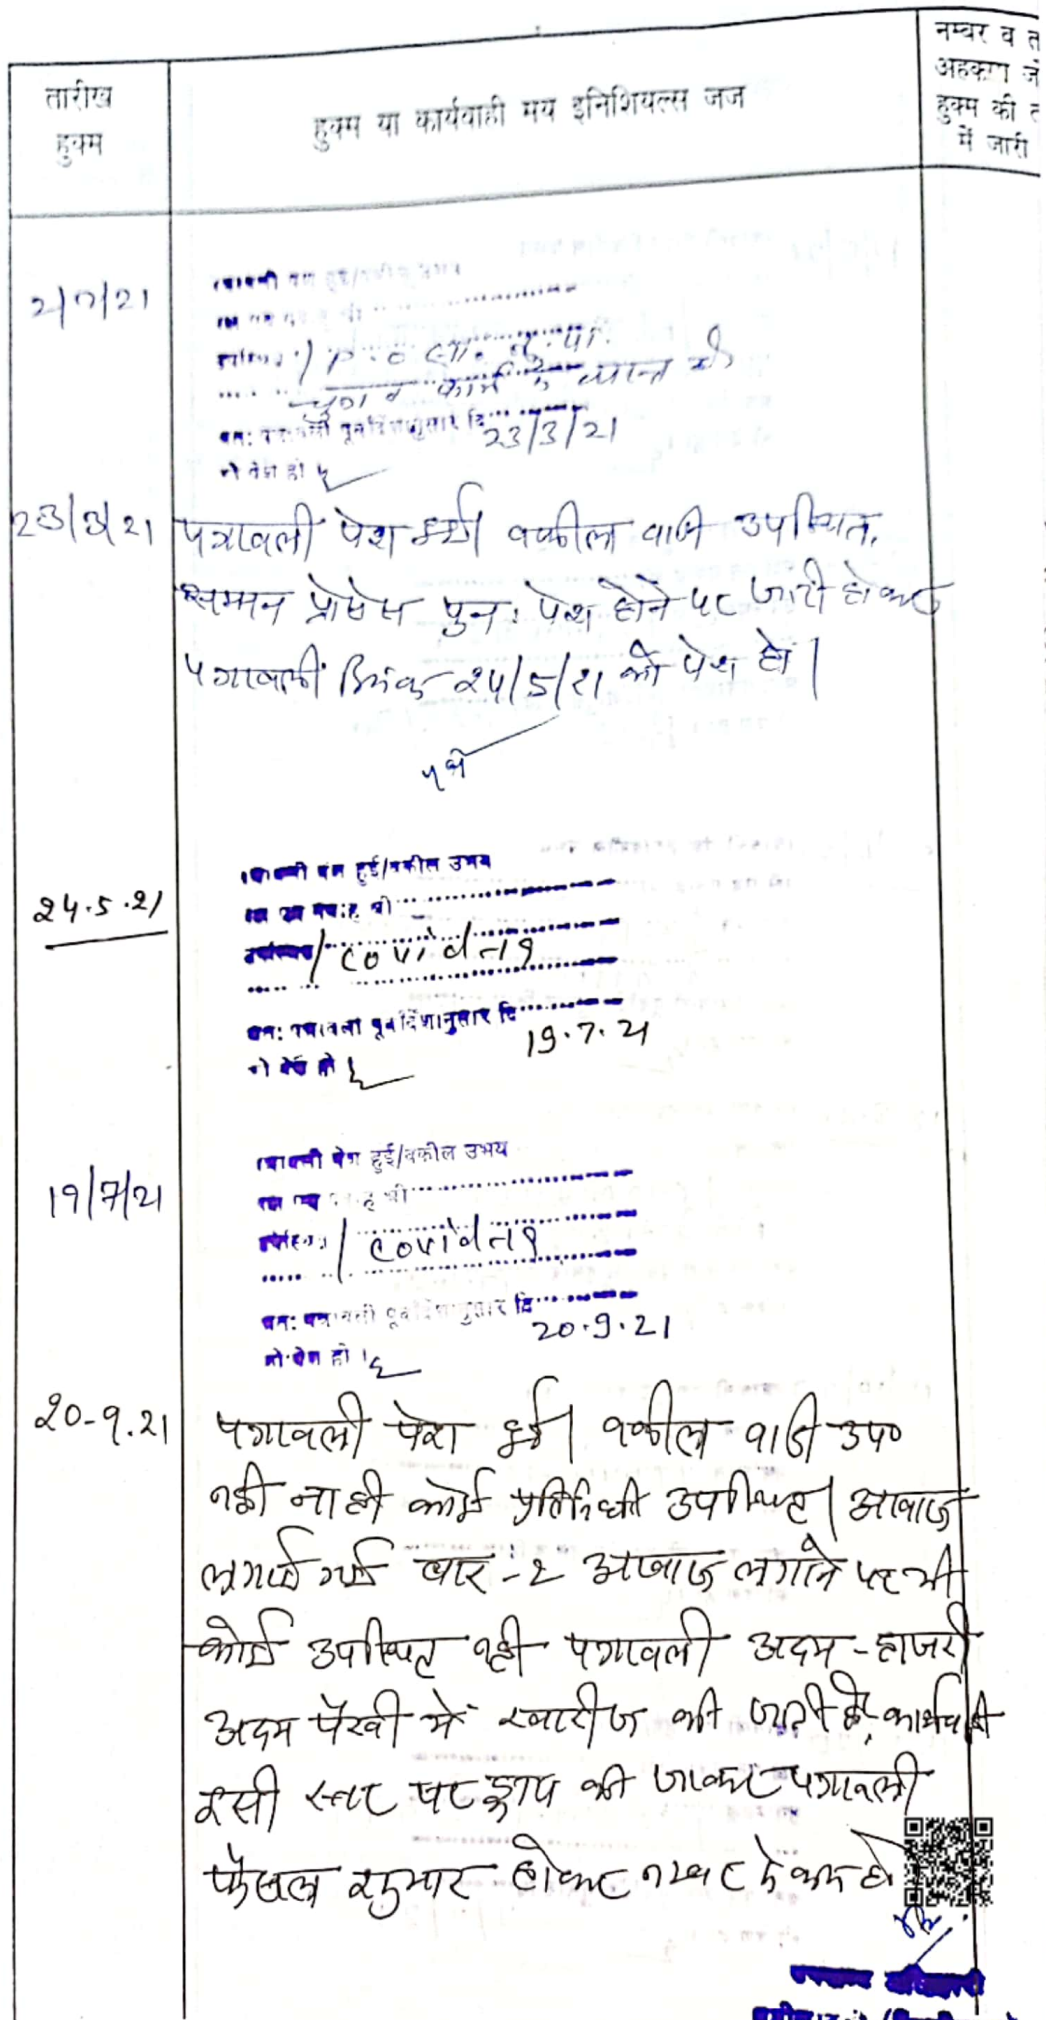 तारीख
हुक्म
हुक्म या कार्यवाही मय इनिशियल्स जज
नम्बर व त
अहकाम जो
हुक्म की त
में जारी
2/7/21
चुनाव कार्य में व्यस्त
23/3/21
23/3/21 पत्रावली पेश हुई। वकील वादी उपस्थित,
सम्मन प्रोसेस पुनः पेश होने पर जारी होकर
पत्रावली दिनांक 24/5/21 को पेश हो।
24.5.21
पत्रावली पेश हुई/वकील उभय
Covid-19
पुन: पत्रावली पूर्वादेशानुसार दि
19.7.21
को पेश हो
19/7/21
पत्रावली पेश हुई/वकील उभय
Covid-19
पुन: पत्रावली पूर्वादेशानुसार दि
20.9.21
को पेश हो
20-9.21 पत्रावली पेश हुई। वकील वादी उप०
नही ना ही कोई प्रतिनिधी उपस्थित। आवाज
लगाई गई बार-2 आवाज लगाने पर भी
कोई उपस्थित नही पत्रावली अदम-हाजरी
अदम पैरवी में खारीज की जाती है, कार्यवाही
इसी स्तर पर ड्राप की जाकर पत्रावली
फैसल शुमार होकर नम्बर से कम हो